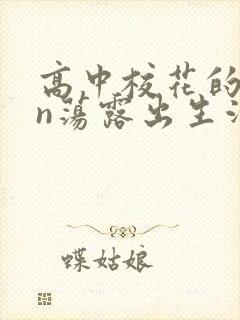 高中校花的
n荡露出生
蝶姑娘